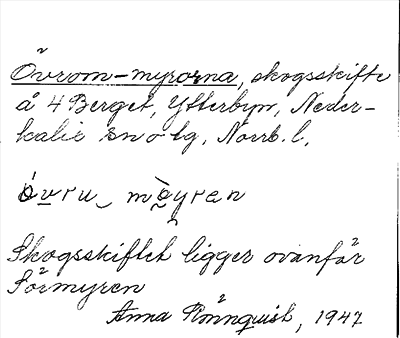 Övrom-myrorna, skogsskifte
å 4 Berget, Ytterbyn, Neder-
kalix sn o tg, Norrb. l.
óvru mòyren
Skogsskiftet ligger ovanför
Sörmyren
Anna Rönnquist, 1947